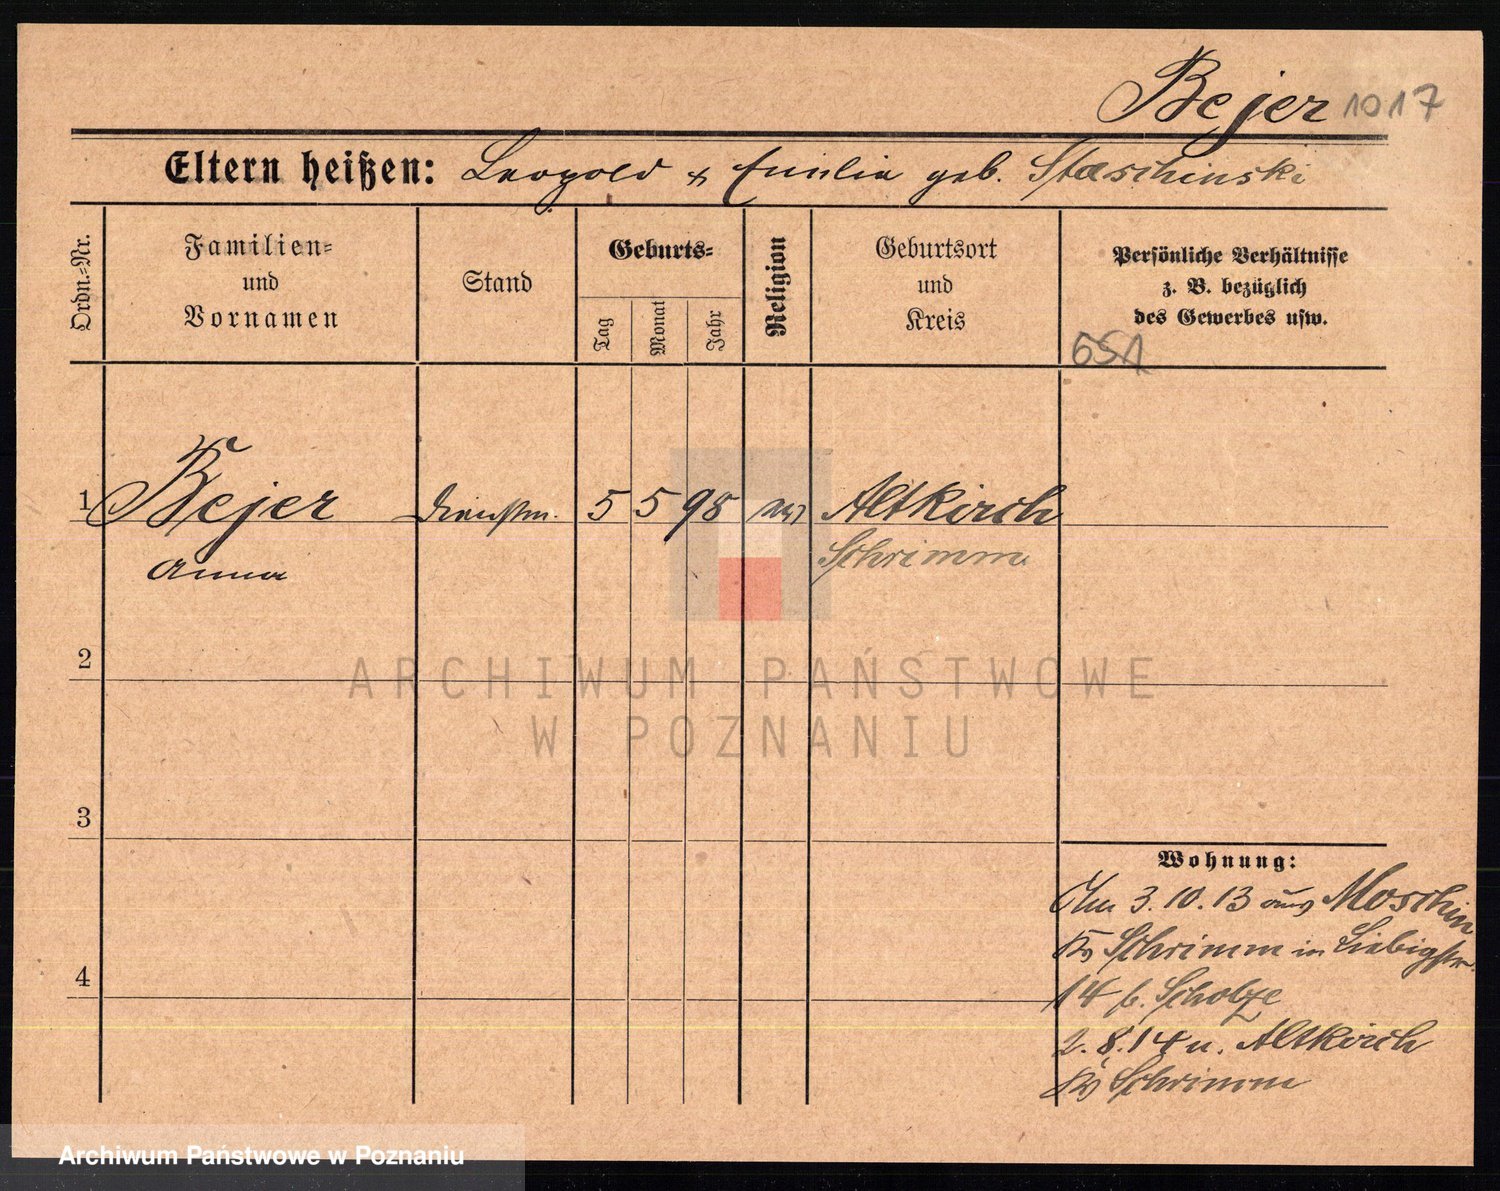 Bejer 1017
Eltern heißen: Leopold & Emilie geb. Staschinski
Ordn.=Nr.
Familien=
und
Vornamen
Stand
Geburts=
Tag
Monat
Jahr
Religion
Geburtsort
und
Kreis
Persönliche Verhältnisse
z. B. bezüglich
des Gewerbes usw.
1 Bejer Dienstm. 5 5 98 ev Altkirch
Anna Schrimm
2
ARCHIWUM PAŃSTWOWE
W POZNANIU
3
Wohnung:
Am 3.10.13 aus Moschin
Kr Schrimm in Liebigstr.
4
14 b. Scholze
2.8.14 n. Altkirch
Kr Schrimm
Archiwum Państwowe w Poznaniu